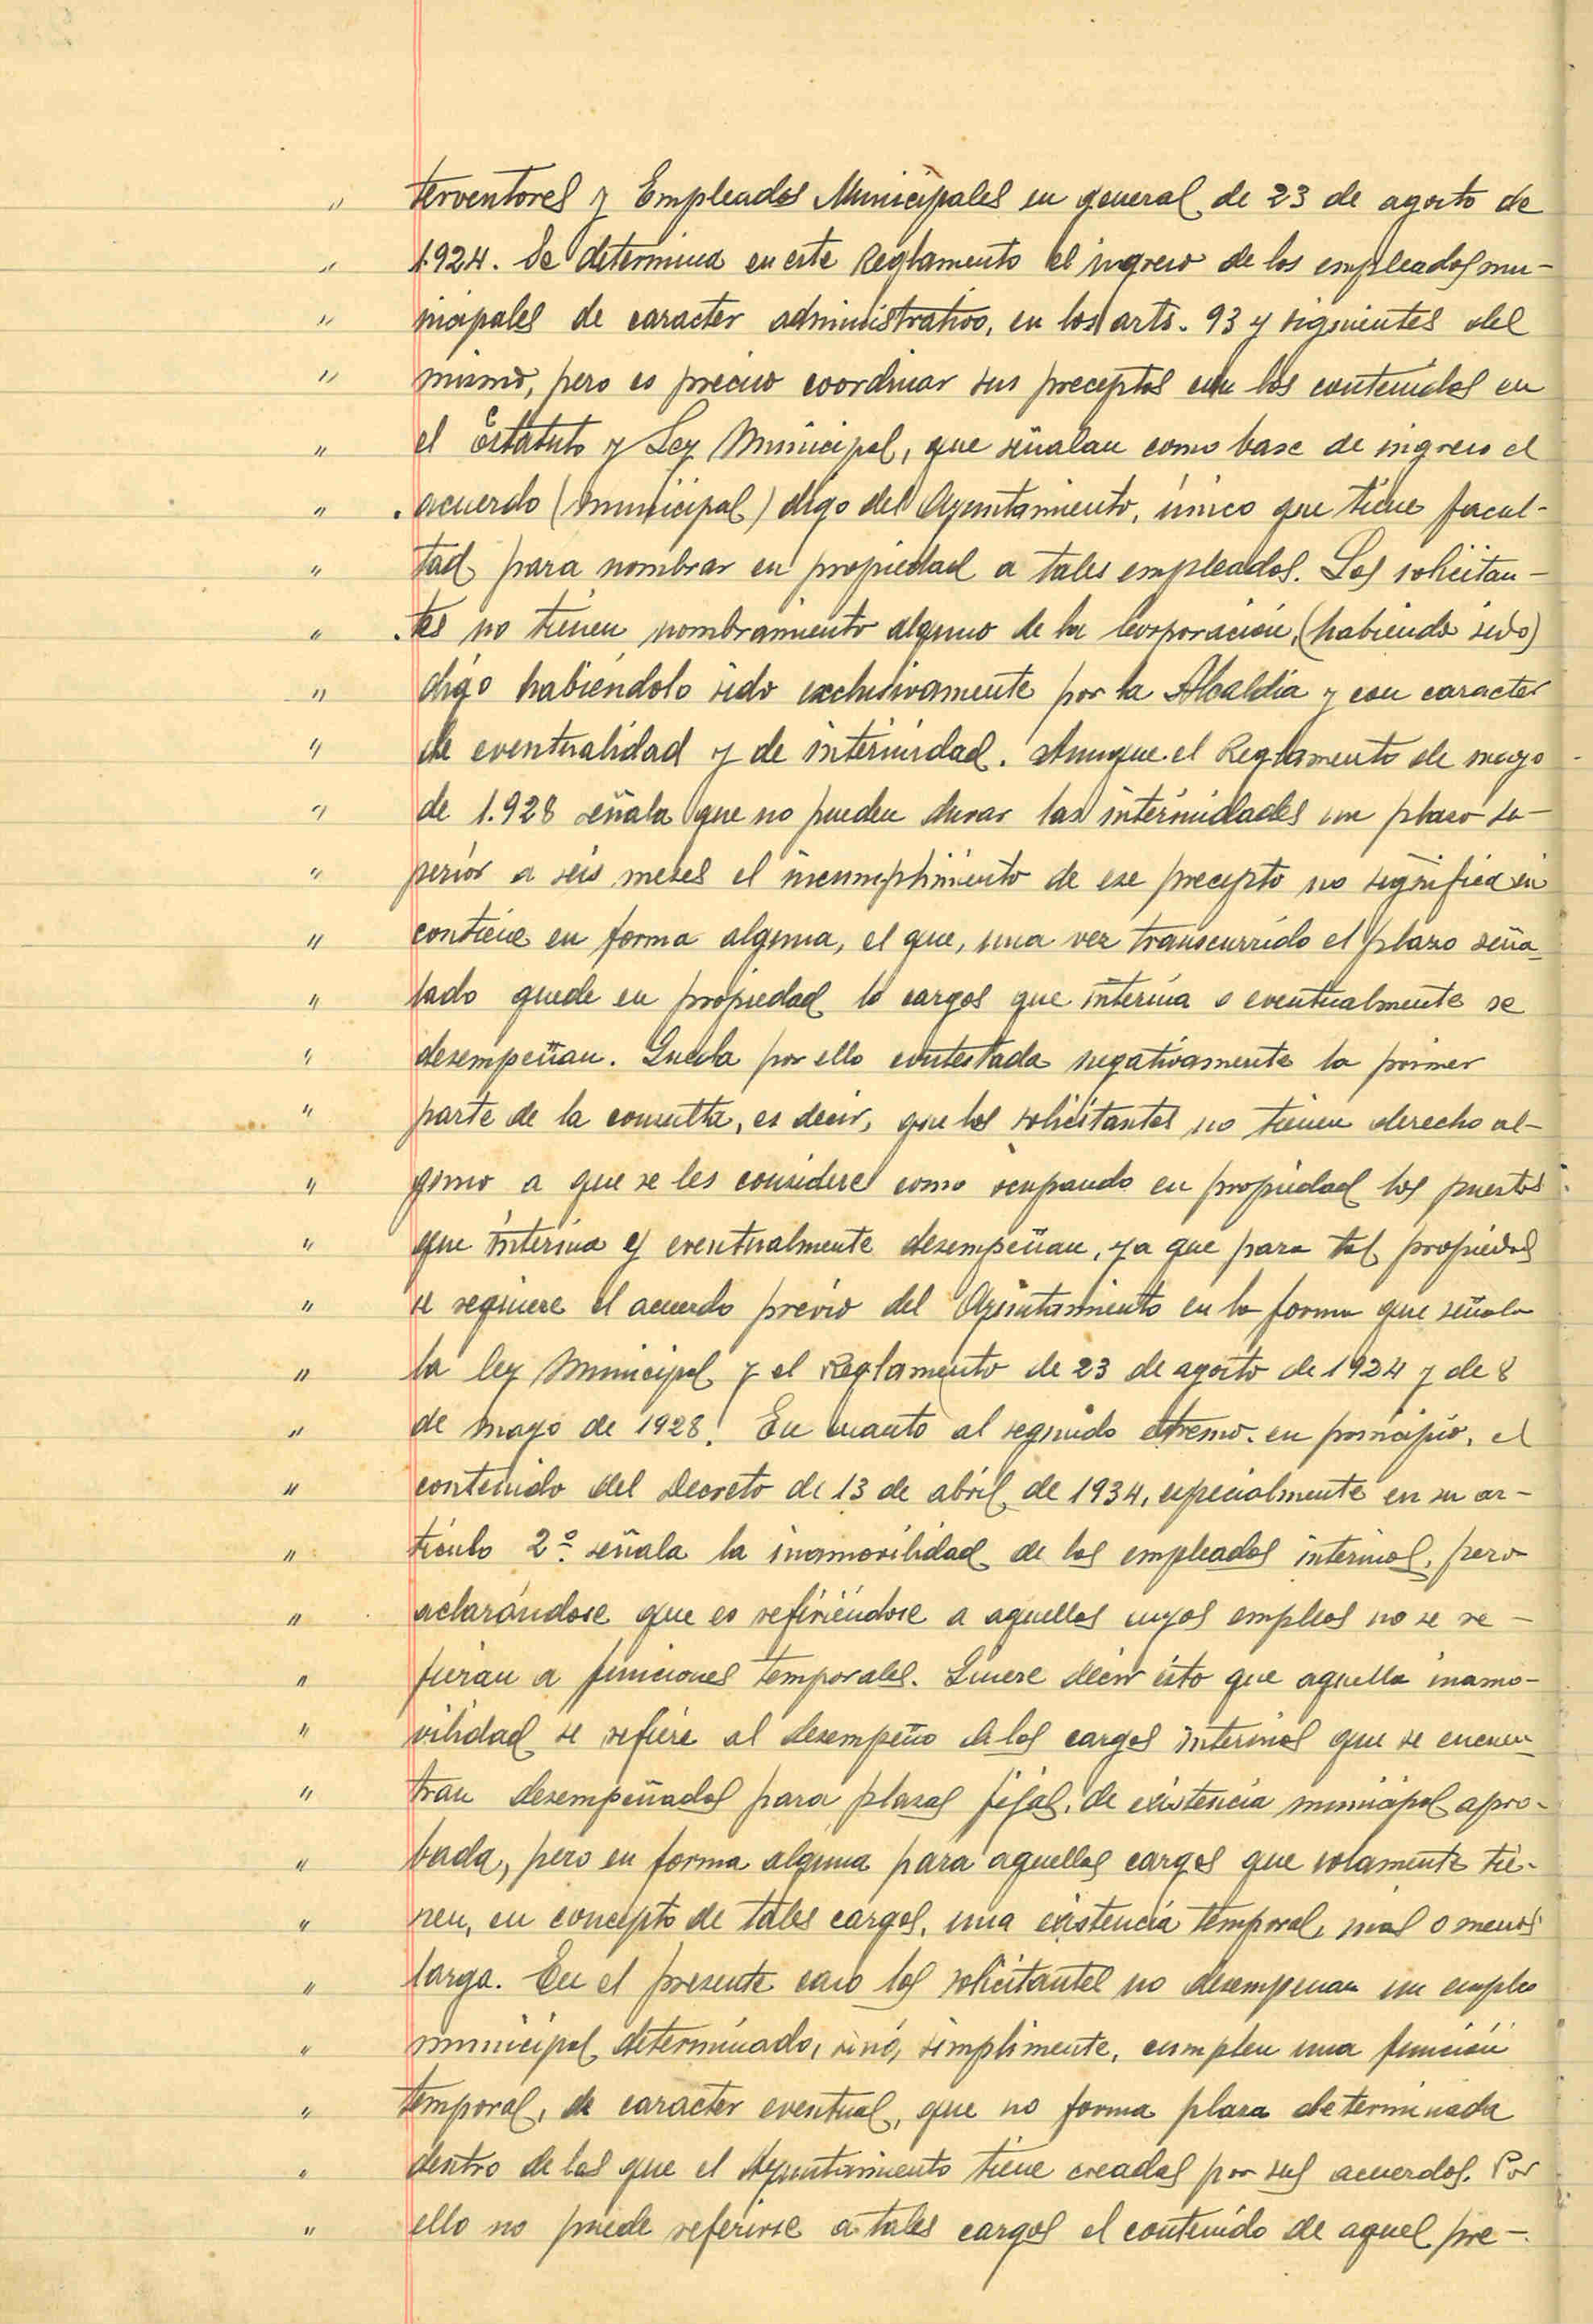 " terventores y Empleados Municipales en general de 23 de agosto de
" 1.924. Se determina en este Reglamento el ingreso de los empleados mu-
" nicipales de caracter administrativo, en los arts. 93 y siguientes del
" mismo, pero es preciso coordinar sus preceptos con los contenidos en
" el Estatuto y Ley Municipal, que señalan como base de ingreso el
" acuerdo (municipal) digo del Ayuntamiento, único que tiene facul-
" tad para nombrar en propiedad a tales empleados. Los solicitan-
" tes no tienen nombramiento alguno de la Corporación, (habiendo sido)
" digo habiéndolo sido exclusivamente por la Alcaldia y con caracter
" de eventualidad y de interinidad. Aunque el Reglamento de mayo
" de 1.928 señala que no pueden durar las interinidades un plazo su-
" perior a seis meses el incumplimiento de ese precepto no significa ni
" contiene en forma alguna, el que, una vez transcurrido el plazo seña-
" lado quede en propiedad lo cargos que interina o eventualmente se
" desempeñan. Queda por ello contestada negativamente la primer
" parte de la consulta, es decir, que los solicitantes no tienen derecho al-
" guno a que se les considere como ocupando en propiedad los puestos
" que interina y eventualmente desempeñan, ya que para tal propiedad
" se requiere el acuerdo previo del Ayuntamiento en la forma que señala
" la ley Municipal y el Reglamento de 23 de agosto de 1924 y de 8
" de mayo de 1928. En cuanto al segundo etremo. en principio, el
" contenido del Decreto de 13 de abril de 1934, especialmente en su ar-
" ticulo 2º. señala la inamovilidad de los empleados interinos, pero
" aclarándose que es refiriéndose a aquellos cuyos empleos no se re-
" fieran a funciones temporales. Quiere decir ésto que aquella inamo-
" vilidad se refiere al desempeño de los cargos interinos que se encuen-
" tran desempeñados para plazas fijas, de existencia municipal apro-
" bada, pero en forma alguna para aquellos cargos que solamente tie-
" nen, en concepto de tales cargos, una existencia temporal, más o menos
" larga. En el presente caso los solicitantes no desempeñan un empleo
" municipal determinado, sinó, simplimente, cumplen una función
" temporal, de caracter eventual, que no forma plaza determinada
" dentro de las que el Ayuntamiento tiene creadas por sus acuerdos. Por
" ello no puede referirse a tales cargos el contenido de aquel pre-